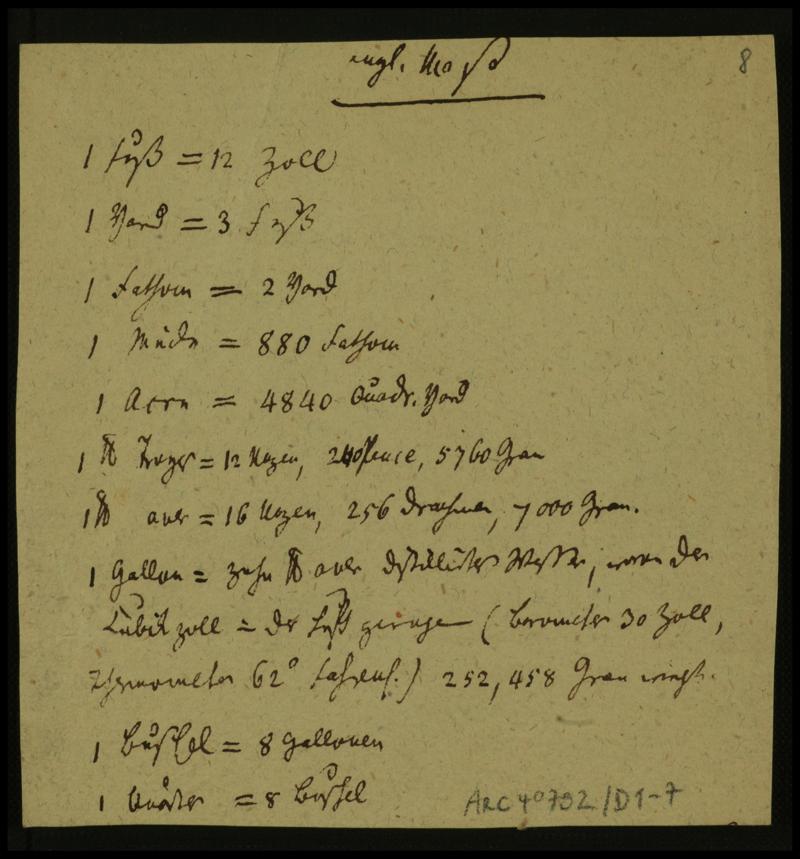 engl. Maß
8
1 Fuß = 12 Zoll
1 Yard = 3 Fuß
1 Fathom = 2 Yard
1 Meile = 880 Fathom
1 Acre = 4840 Quadr. Yard
1 ℔ Troye = 12 Unzen, 240 Pence, 5760 Gran
1 ℔ aver = 16 Unzen, 256 Drachmen, 7000 Gran.
1 Gallon = zehn ℔ aver destillirtes Wasser, wovon der
Cubikzoll = der Luft gewogen (Barometer 30 Zoll,
Thermometer 62° Fahrenh.) 252,458 Gran wiegt.
1 Buschel = 8 Gallonen
1 Quarter = 8 Buschel
ARC 4° 792/D1-7